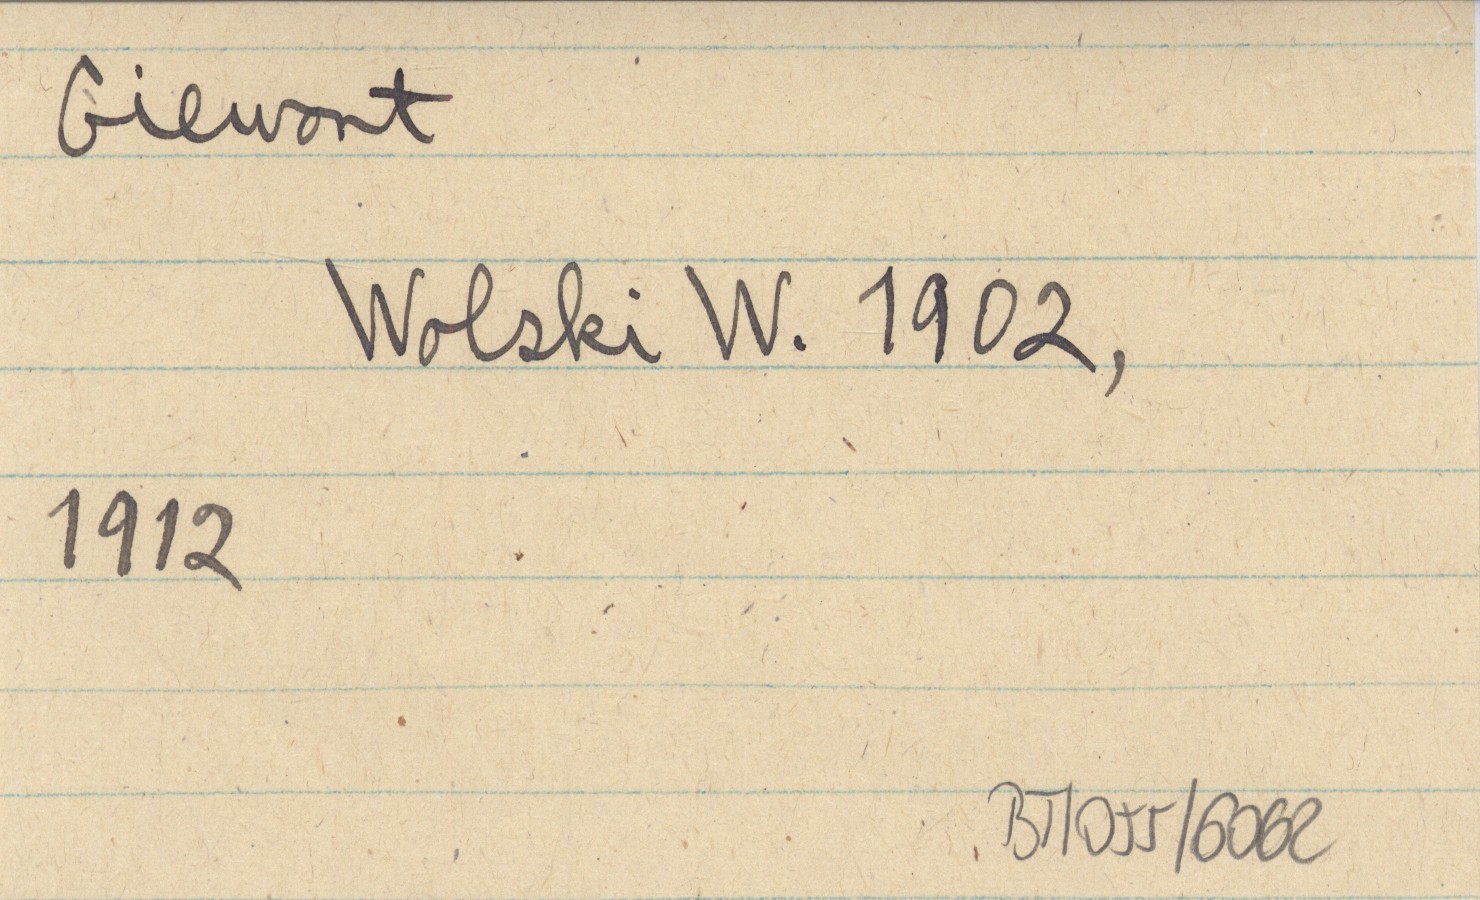 Giewont
Wolski W. 1902,
1912
BT/055/6062